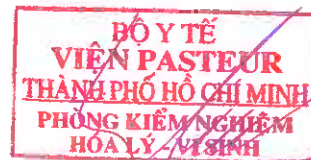 BỘ Y TẾ
VIỆN PASTEUR
THÀNH PHỐ HỒ CHÍ MINH
PHÒNG KIỂM NGHIỆM
HÓA LÝ - VI SINH